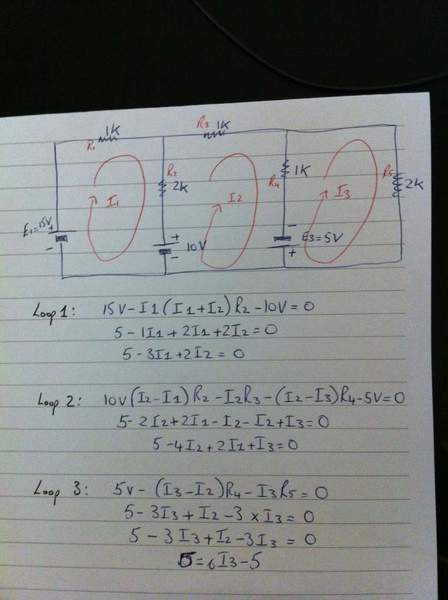 R1 1K
R3 1K
R2
2K
R4 1K
R5
2K
I1
I2
I3
E1=15V
-
+
10V
-
-
E3=5V
+
Loop 1: 15V-I1(I1+I2)R2-10V=0
5-1I1+2I1+2I2=0
5-3I1+2I2=0
Loop 2: 10V(I2-I1)R2-I2R3-(I2-I3)R4-5V=0
5-2I2+2I1-I2-I2+I3=0
5-4I2+2I1+I3=0
Loop 3: 5V-(I3-I2)R4-I3R5=0
5-3I3+I2-3×I3=0
5-3I3+I2-3I3=0
5=6I3-5